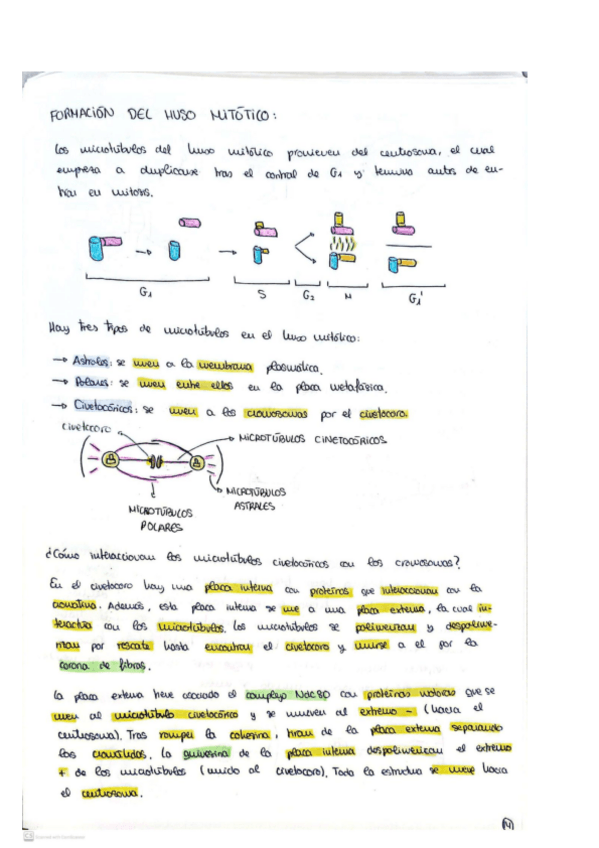 FORMACIÓN DEL HUSO MITÓTICO:
Los microtúbulos del huso mitótico provienen del centrosoma, el cual
empieza a duplicarse tras el control de G1 y termina antes de en-
trar en mitosis.
G1 S G2 M G1'
Hay tres tipos de microtúbulos en el huso mitótico:
→ Astrales: se unen a la membrana plasmática.
→ Polares: se unen entre ellos en la placa metafásica.
→ Cinetocóricos: se unen a los cromosomas por el cinetocoro.
cinetocoro
MICROTÚBULOS CINETOCÓRICOS
MICROTÚBULOS
ASTRALES
MICROTÚBULOS
POLARES
¿Cómo interaccionan los microtúbulos cinetocóricos con los cromosomas?
En el cinetocoro hay una placa interna con proteínas que interaccionan con la
cromatina. Además, esta placa interna se une a una placa externa, la cual in-
teractúa con los microtúbulos. Los microtúbulos se polimerizan y despolime-
rizan por rescate hasta encontrar el cinetocoro y unirse a el por la
corona de fibras.
La placa externa tiene asociado el complejo Ndc80 con proteínas motoras que se
unen al microtúbulo cinetocórico y se mueven al extremo - (hacia el
centrosoma). Tras romper la cohesina, tiran de la placa externa separando
las cromátidas. La quinesina de la placa interna despolimerizan el extremo
+ de los microtúbulos (unido al cinetocoro). Toda la estructura se mueve hacia
el centrosoma.